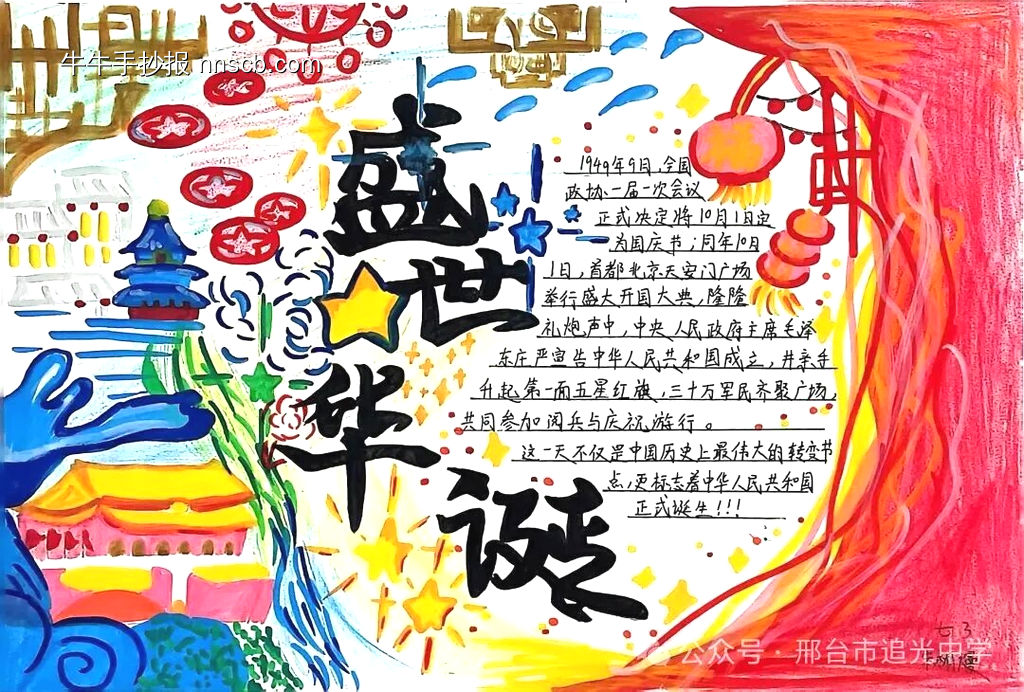 牛牛手抄报 nnscb.com
盛世华诞
1949年9月,全国
政协一届一次会议
正式决定将10月1日定
为国庆节;同年10月
1日,首都北京天安门广场
举行盛大开国大典,隆隆
礼炮声中,中央人民政府主席毛泽
东庄严宣告中华人民共和国成立,并亲手
升起第一面五星红旗,三十万军民齐聚广场,
共同参加阅兵与庆祝游行。
这一天不仅是中国历史上最伟大的转变节
点,更标志着中华人民共和国
正式诞生!!!
七3
公众号·邢台市追光中学